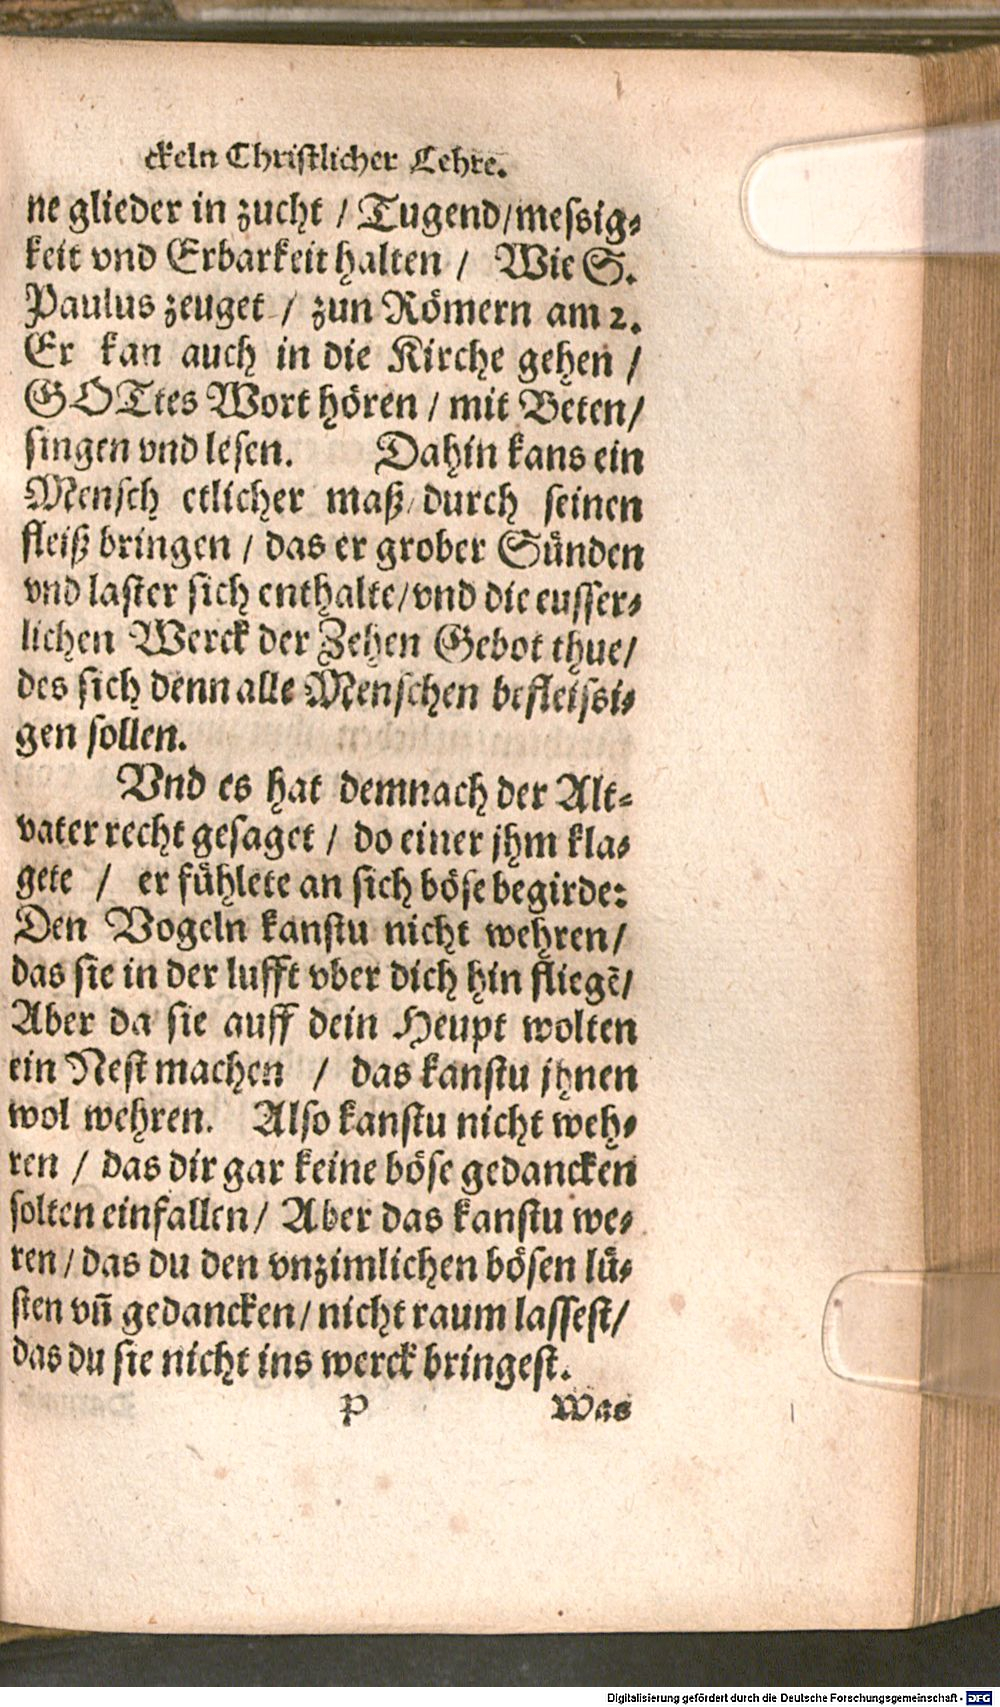 ckeln Christlicher Lehre.
ne glieder in zucht / Tugend/messig⸗
keit vnd Erbarkeit halten / Wie S.
Paulus zeuget / zun Römern am 2.
Er kan auch in die Kirche gehen /
GOTtes Wort hören / mit Beten/
singen vnd lesen. Dahin kans ein
Mensch etlicher maß durch seinen
fleiß bringen / das er grober Sünden
vnd laster sich enthalte/vnd die eusser⸗
lichen Werck der Zehen Gebot thue/
des sich denn alle Menschen befleissi⸗
gen sollen.
Vnd es hat demnach der Alt⸗
vater recht gesaget / do einer jhm kla⸗
gete / er fühlete an sich böse begirde:
Den Vogeln kanstu nicht wehren/
das sie in der lufft vber dich hin fliegẽ/
Aber da sie auff dein Heupt wolten
ein Nest machen / das kanstu jhnen
wol wehren. Also kanstu nicht weh⸗
ren / das dir gar keine böse gedancken
solten einfallen/ Aber das kanstu we⸗
ren/das du den vnzimlichen bösen lü⸗
sten vñ gedancken/nicht raum lassest/
das du sie nicht ins werck bringest.
P Was
Digitalisierung gefördert durch die Deutsche Forschungsgemeinschaft - DFG